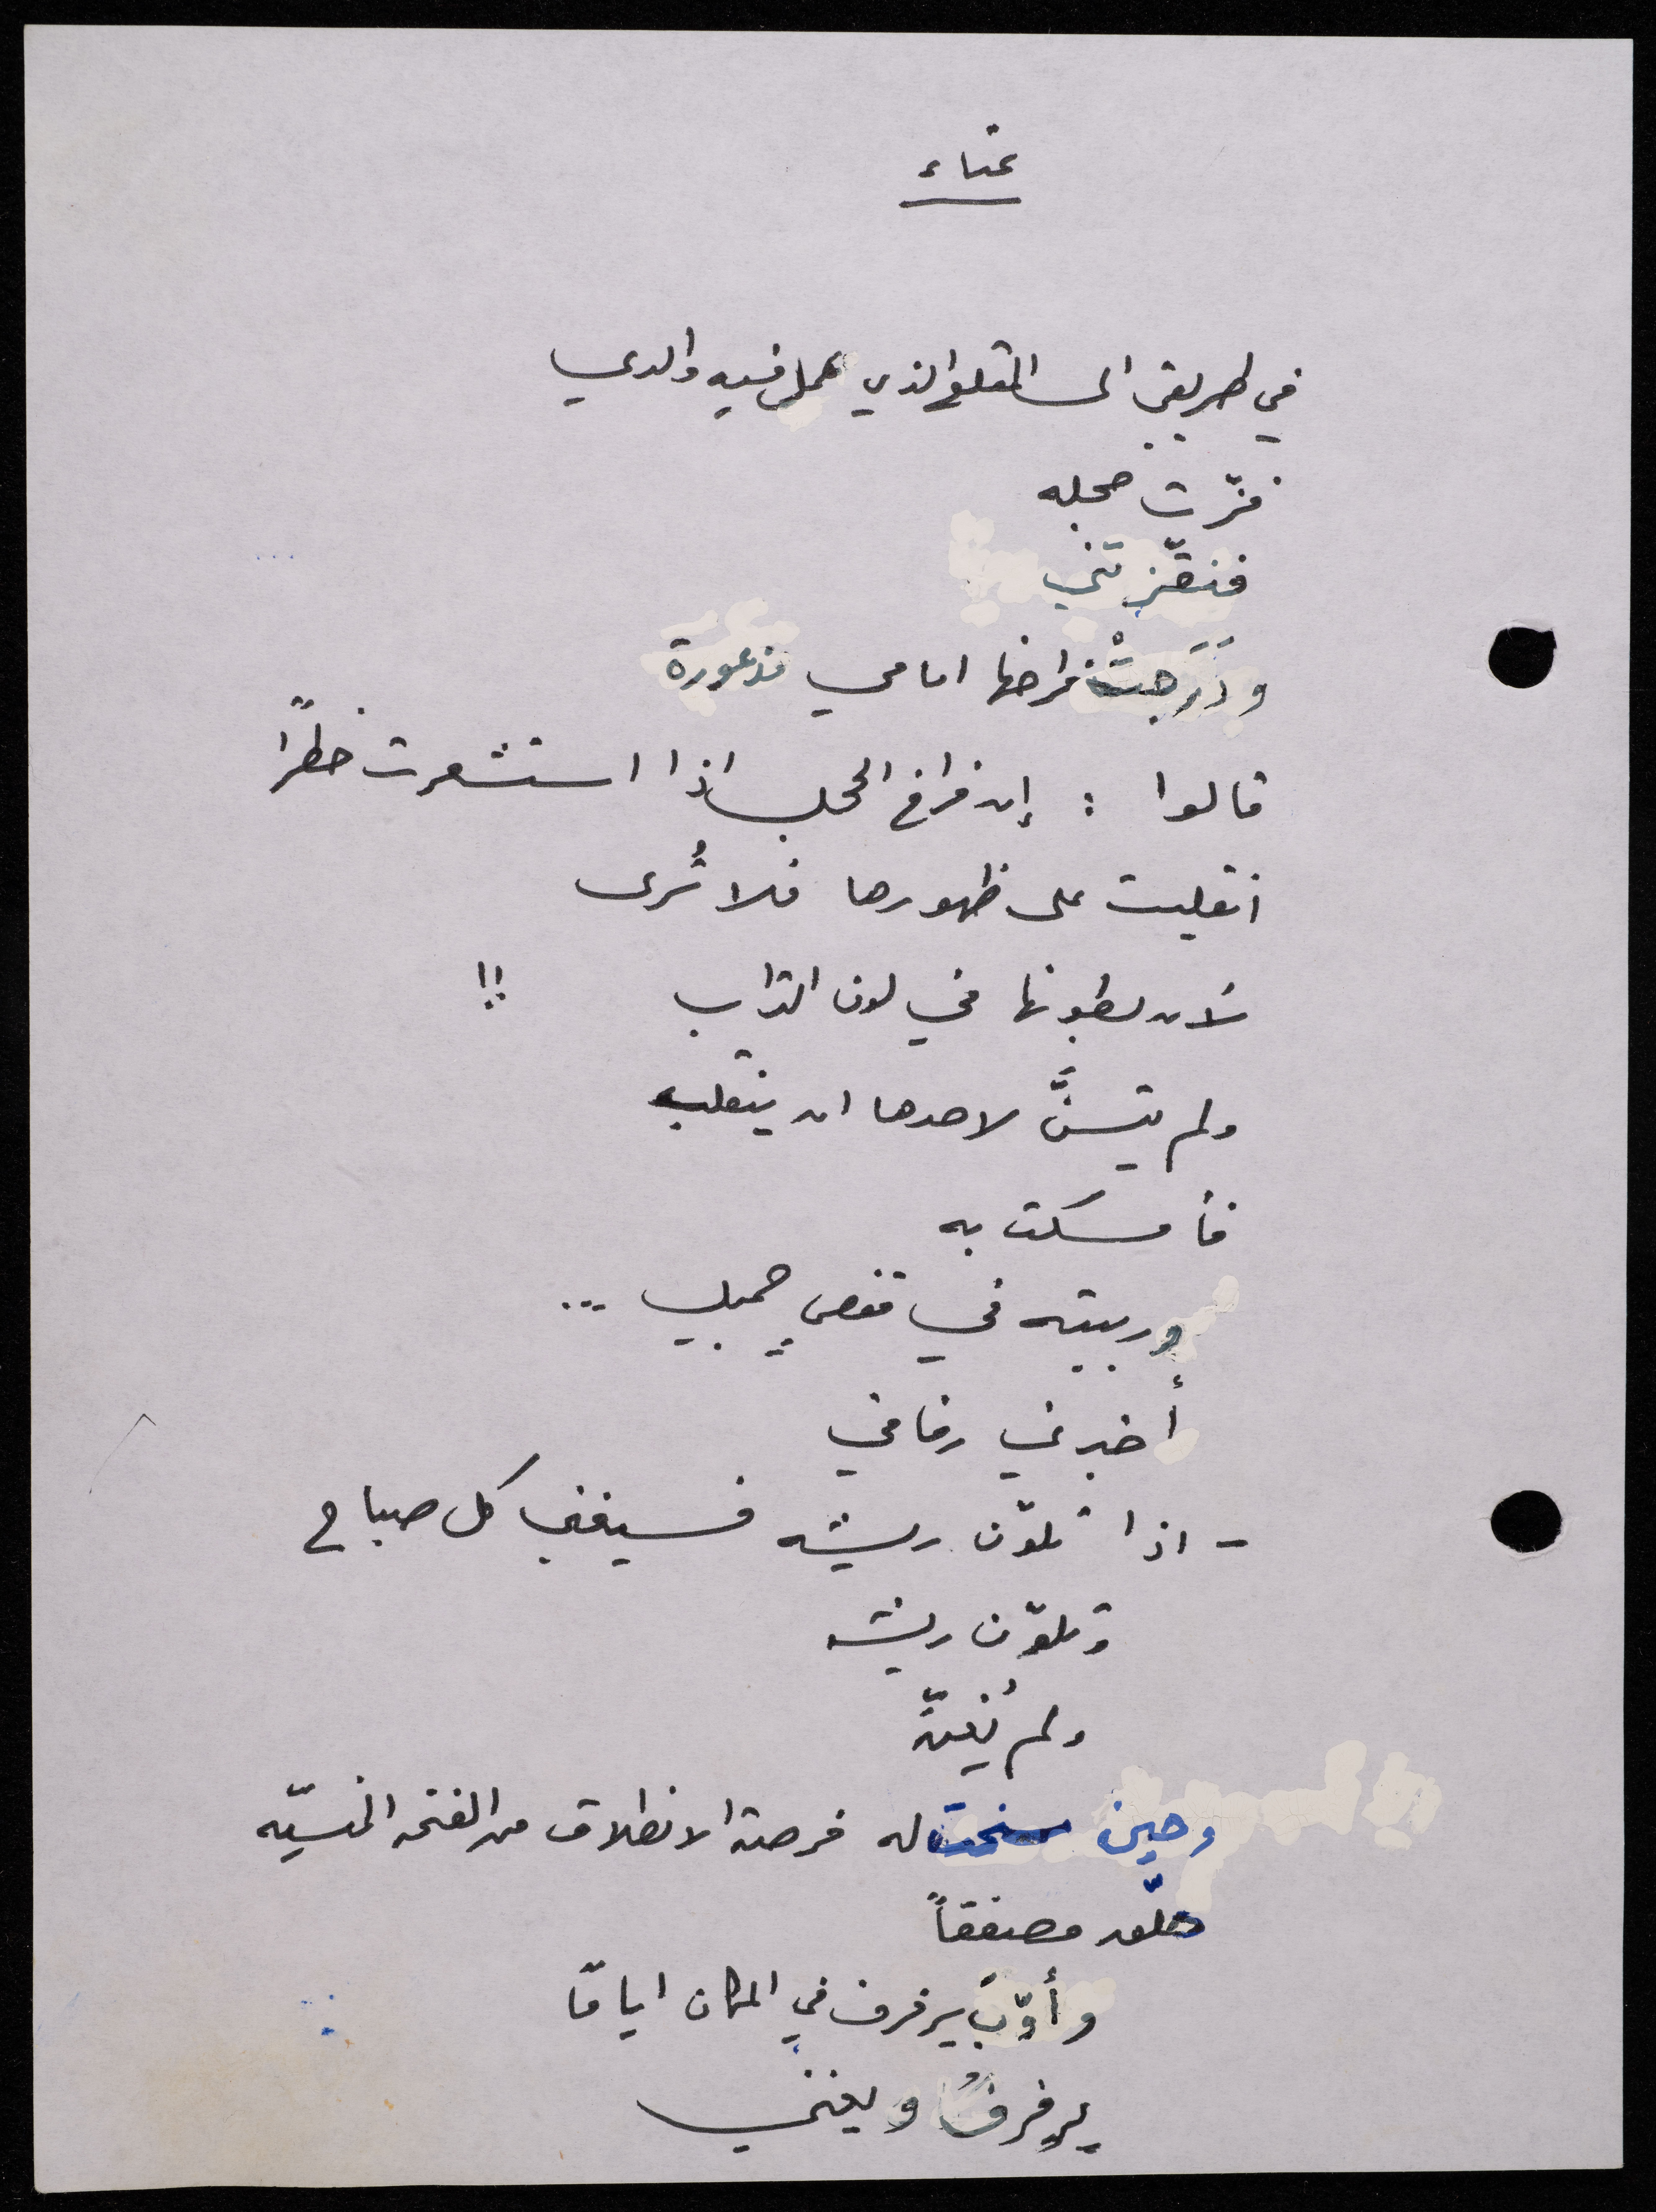 غناء
في طريقي الى المقلع الذي عمل فيه والدي
فزّت حجله
فنقّزتني
ودَرَجتْ فراخها امامي مذعورة
قالوا : إن فراخ الحجل اذا استشعرت خطرًا
انقلبت على ظهورها فلا تُرى
لأن بطونها في لون التراب !!
ولم يتسنَّ لاحدها ان ينقلب
فأمسكت به
وربيته في قفصٍ جميل ...
أخبرني رفاقي
- اذا تلوّن ريشه فسيغني كل صباح
وتلوّن ريشه
ولم يُغنِّ
وحين سنحت له فرصة الانطلاق من الفتحه المنسيّه
حلّق مصفقاً
وأوّبَ يرفرف في المكان اياماً
يرفرفُ ويغني